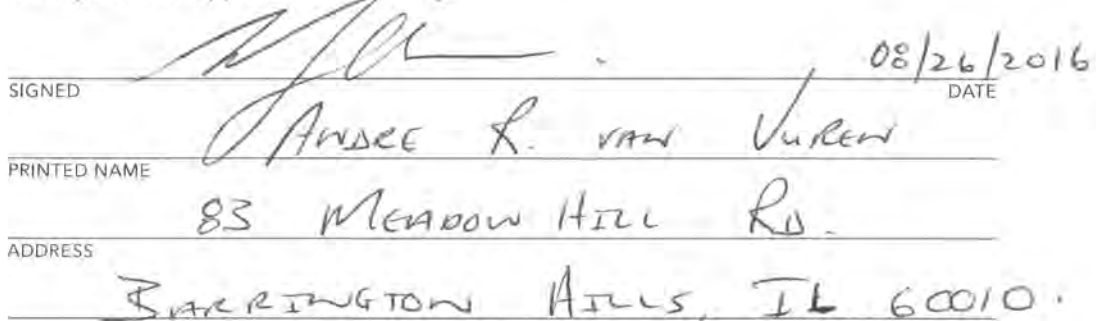 08/26/2016
SIGNED DATE
ANDRE R. VAN VUREN
PRINTED NAME
83 MEADOW HILL RD.
ADDRESS
BARRINGTON HILLS, IL 60010.